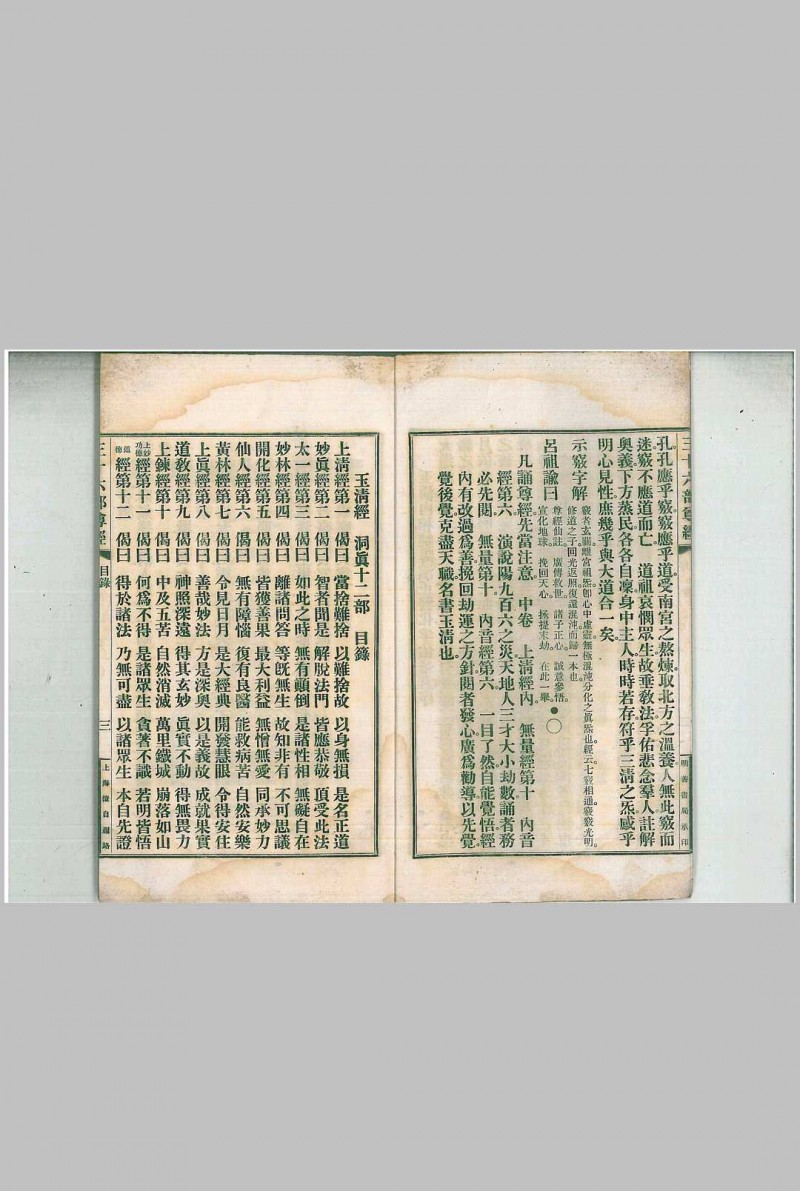 三十六部尊經
明善書局承印
孔孔應乎竅竅應乎道受南宮之熬煉取北方之溫養人無此竅而
迷竅不應道而亡　道祖哀憫眾生故垂敎法孚佑悲念羣人註解
奧義下方蒸民各各自凜身中主人時時若存符乎三清之炁感乎
明心見性庶幾乎與大道合一矣
示竅字解
竅者玄關離宮祖炁卽心中虛靈無極混沌分化之眞炁也經云七竅相通竅竅光明
修道之子回光返照復還混沌而歸一本也
呂祖諭曰
尊經仙註　廣傳救世　諸子正心　誠意參悟
宣化地球　挽回天心　拯提末劫　在此一舉
凡誦尊經先當注意　中卷　上清經內　無量經第十　內音
經第六　演說陽九百六之災天地人三才大小劫數誦者務
必先閱　無量第十　內音經第六　一目了然自能覺悟經
內有改過爲善挽回劫運之方針閱者發心廣爲勸導以先覺
覺後覺克盡天職名書玉清也
玉清經　洞眞十二部　目錄
上清經第一　偈曰　當捨難捨　以難捨故　以身無損　是名正道
妙眞經第二　偈曰　智者聞是　解脫法門　皆應恭敬　頂受此法
太一經第三　偈曰　如此之時　無有顚倒　是諸性相　無礙自在
妙林經第四　偈曰　離諸問答　等旣無生　故知非有　不可思議
開化經第五　偈曰　皆獲善果　最大利益　無憎無愛　同承妙力
仙人經第六　偈曰　無有障惱　復有良醫　能救病苦　自然安樂
黃林經第七　偈曰　令見日月　是大經典　開發慧眼　令得安住
上眞經第八　偈曰　善哉妙法　方是深奧　以是義故　成就果實
道教經第九　偈曰　神照深遠　得其玄妙　眞實不動　得無畏力
上鍊經第十　偈曰　中及五苦　自然消滅　萬里鐵城　崩落如山
上妙功德經第十一　偈曰　何爲不得　是諸眾生　貪著不識　若明皆悟
德經第十二　偈曰　得於諸法　乃無可盡　以諸眾生　本自先證
三十六部尊經
目錄
三